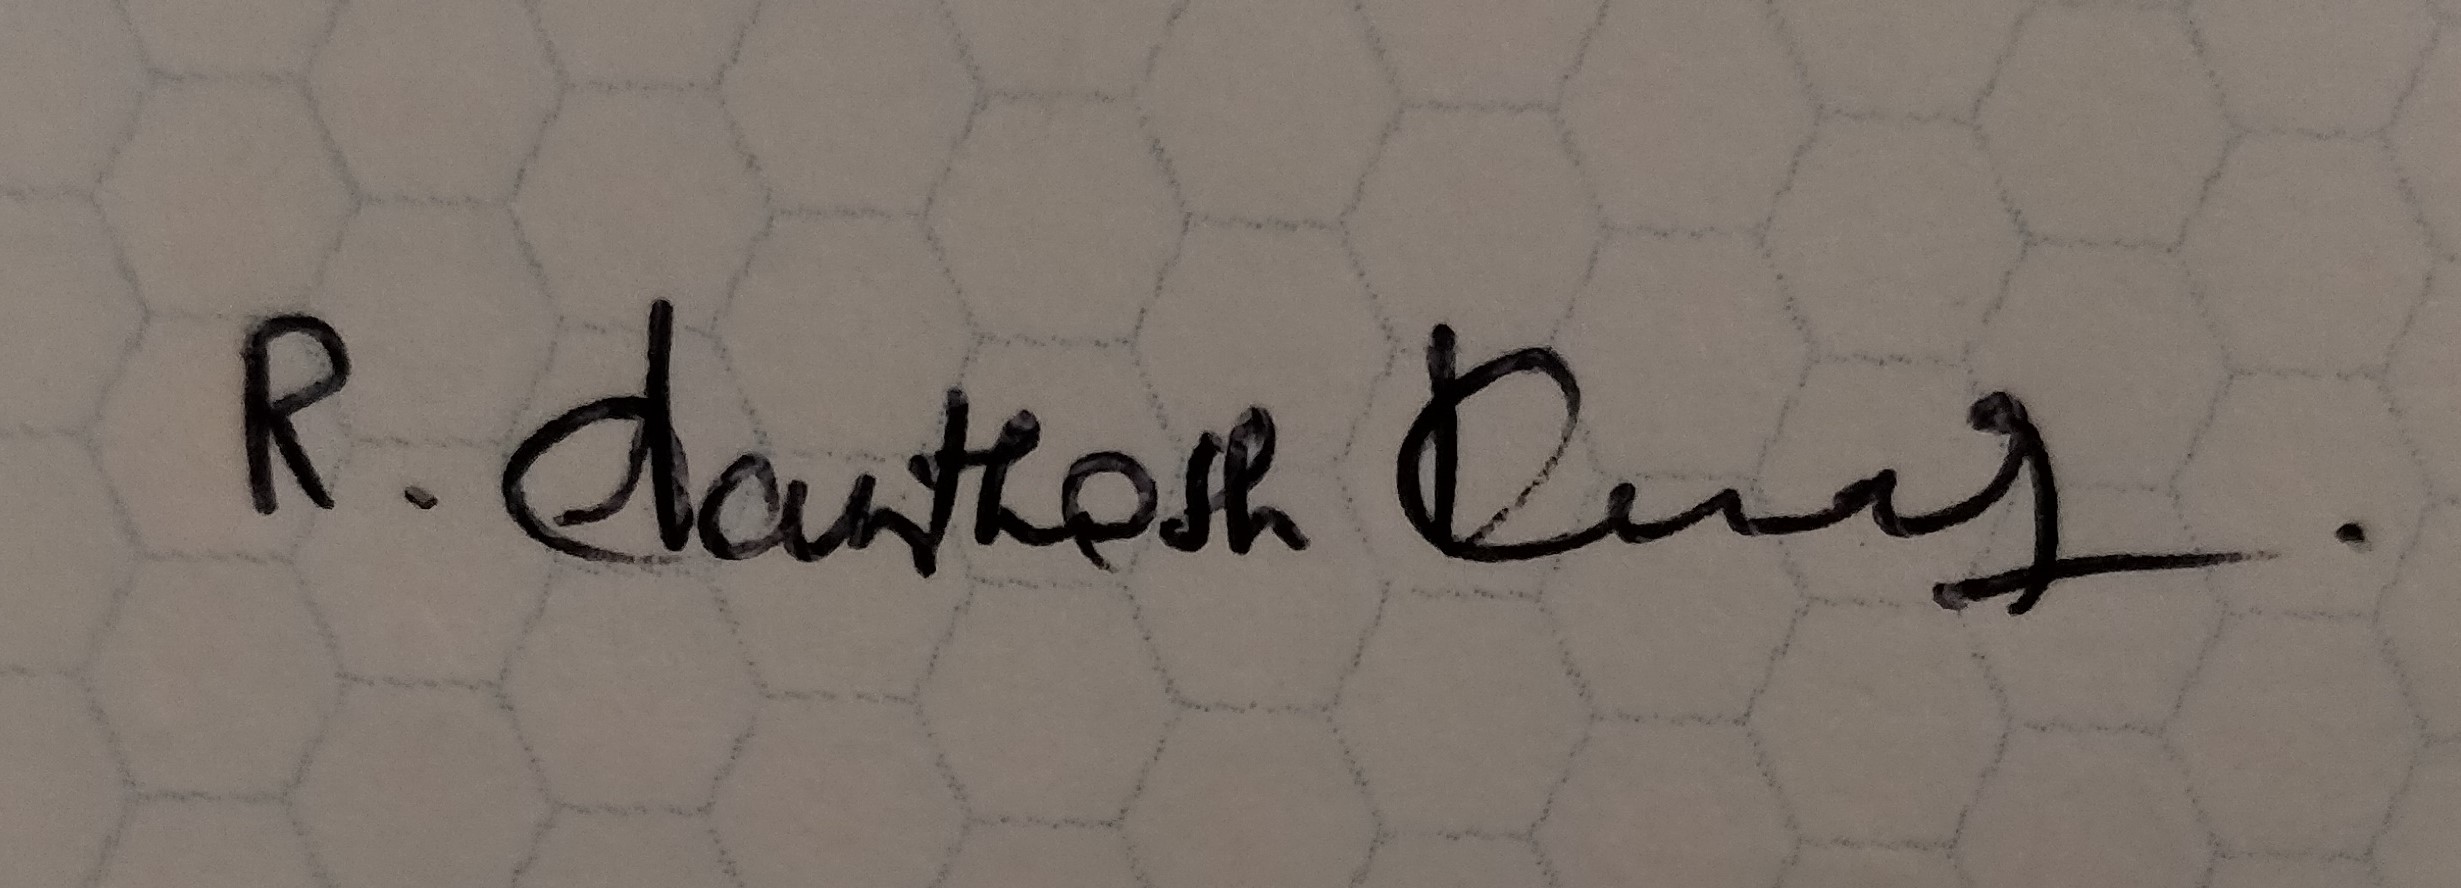 R. Santhosh Kumar.